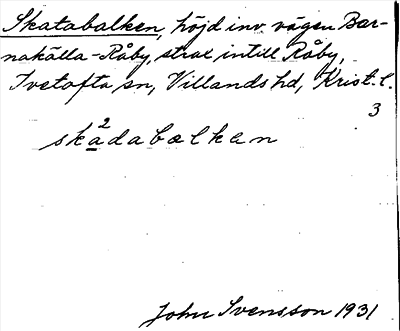 Skatabalken, höjd inv vägen Bar-
nakälla-Råby, strax intill Råby,
Ivetofta sn, Villands hd, Krist. l.
3
2
skadabalken
John Svensson 1931